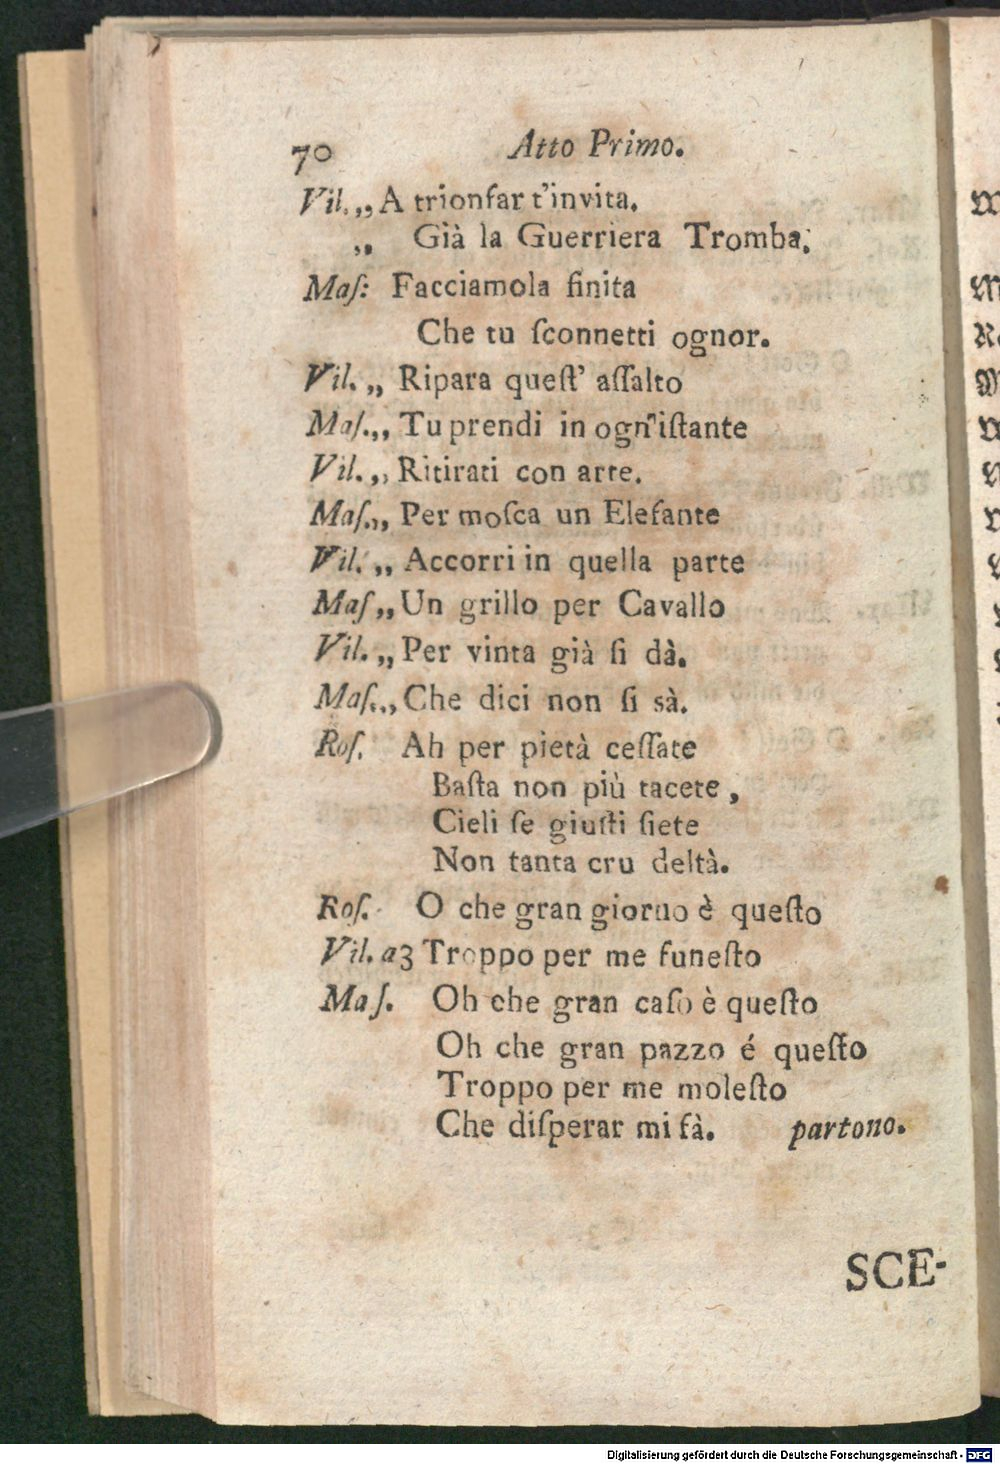 70 Atto Primo.
Vil.,, A trionfar t'invita.
,, Già la Guerriera Tromba.
Maſ: Facciamola finita
Che tu ſconnetti ognor.
Vil. ,, Ripara queſt' aſſalto
Maſ.,, Tu prendi in ogn' iſtante
Vil. ,, Ritirati con arte.
Maſ.,, Per moſca un Elefante
Vil. ,, Accorri in quella parte
Maſ ,, Un grillo per Cavallo
Vil. ,, Per vinta già ſi dà.
Maſ.,, Che dici non ſi sà.
Roſ. Ah per pietà ceſſate
Baſta non più tacete ,
Cieli ſe giuſti ſiete
Non tanta cru deltà.
Roſ. O che gran giorno è queſto
Vil. a3 Troppo per me funeſto
Maſ. Oh che gran caſo è queſto
Oh che gran pazzo é queſto
Troppo per me moleſto
Che diſperar mi fà. partono.
SCE-
Digitalisierung gefördert durch die Deutsche Forschungsgemeinschaft - DFG